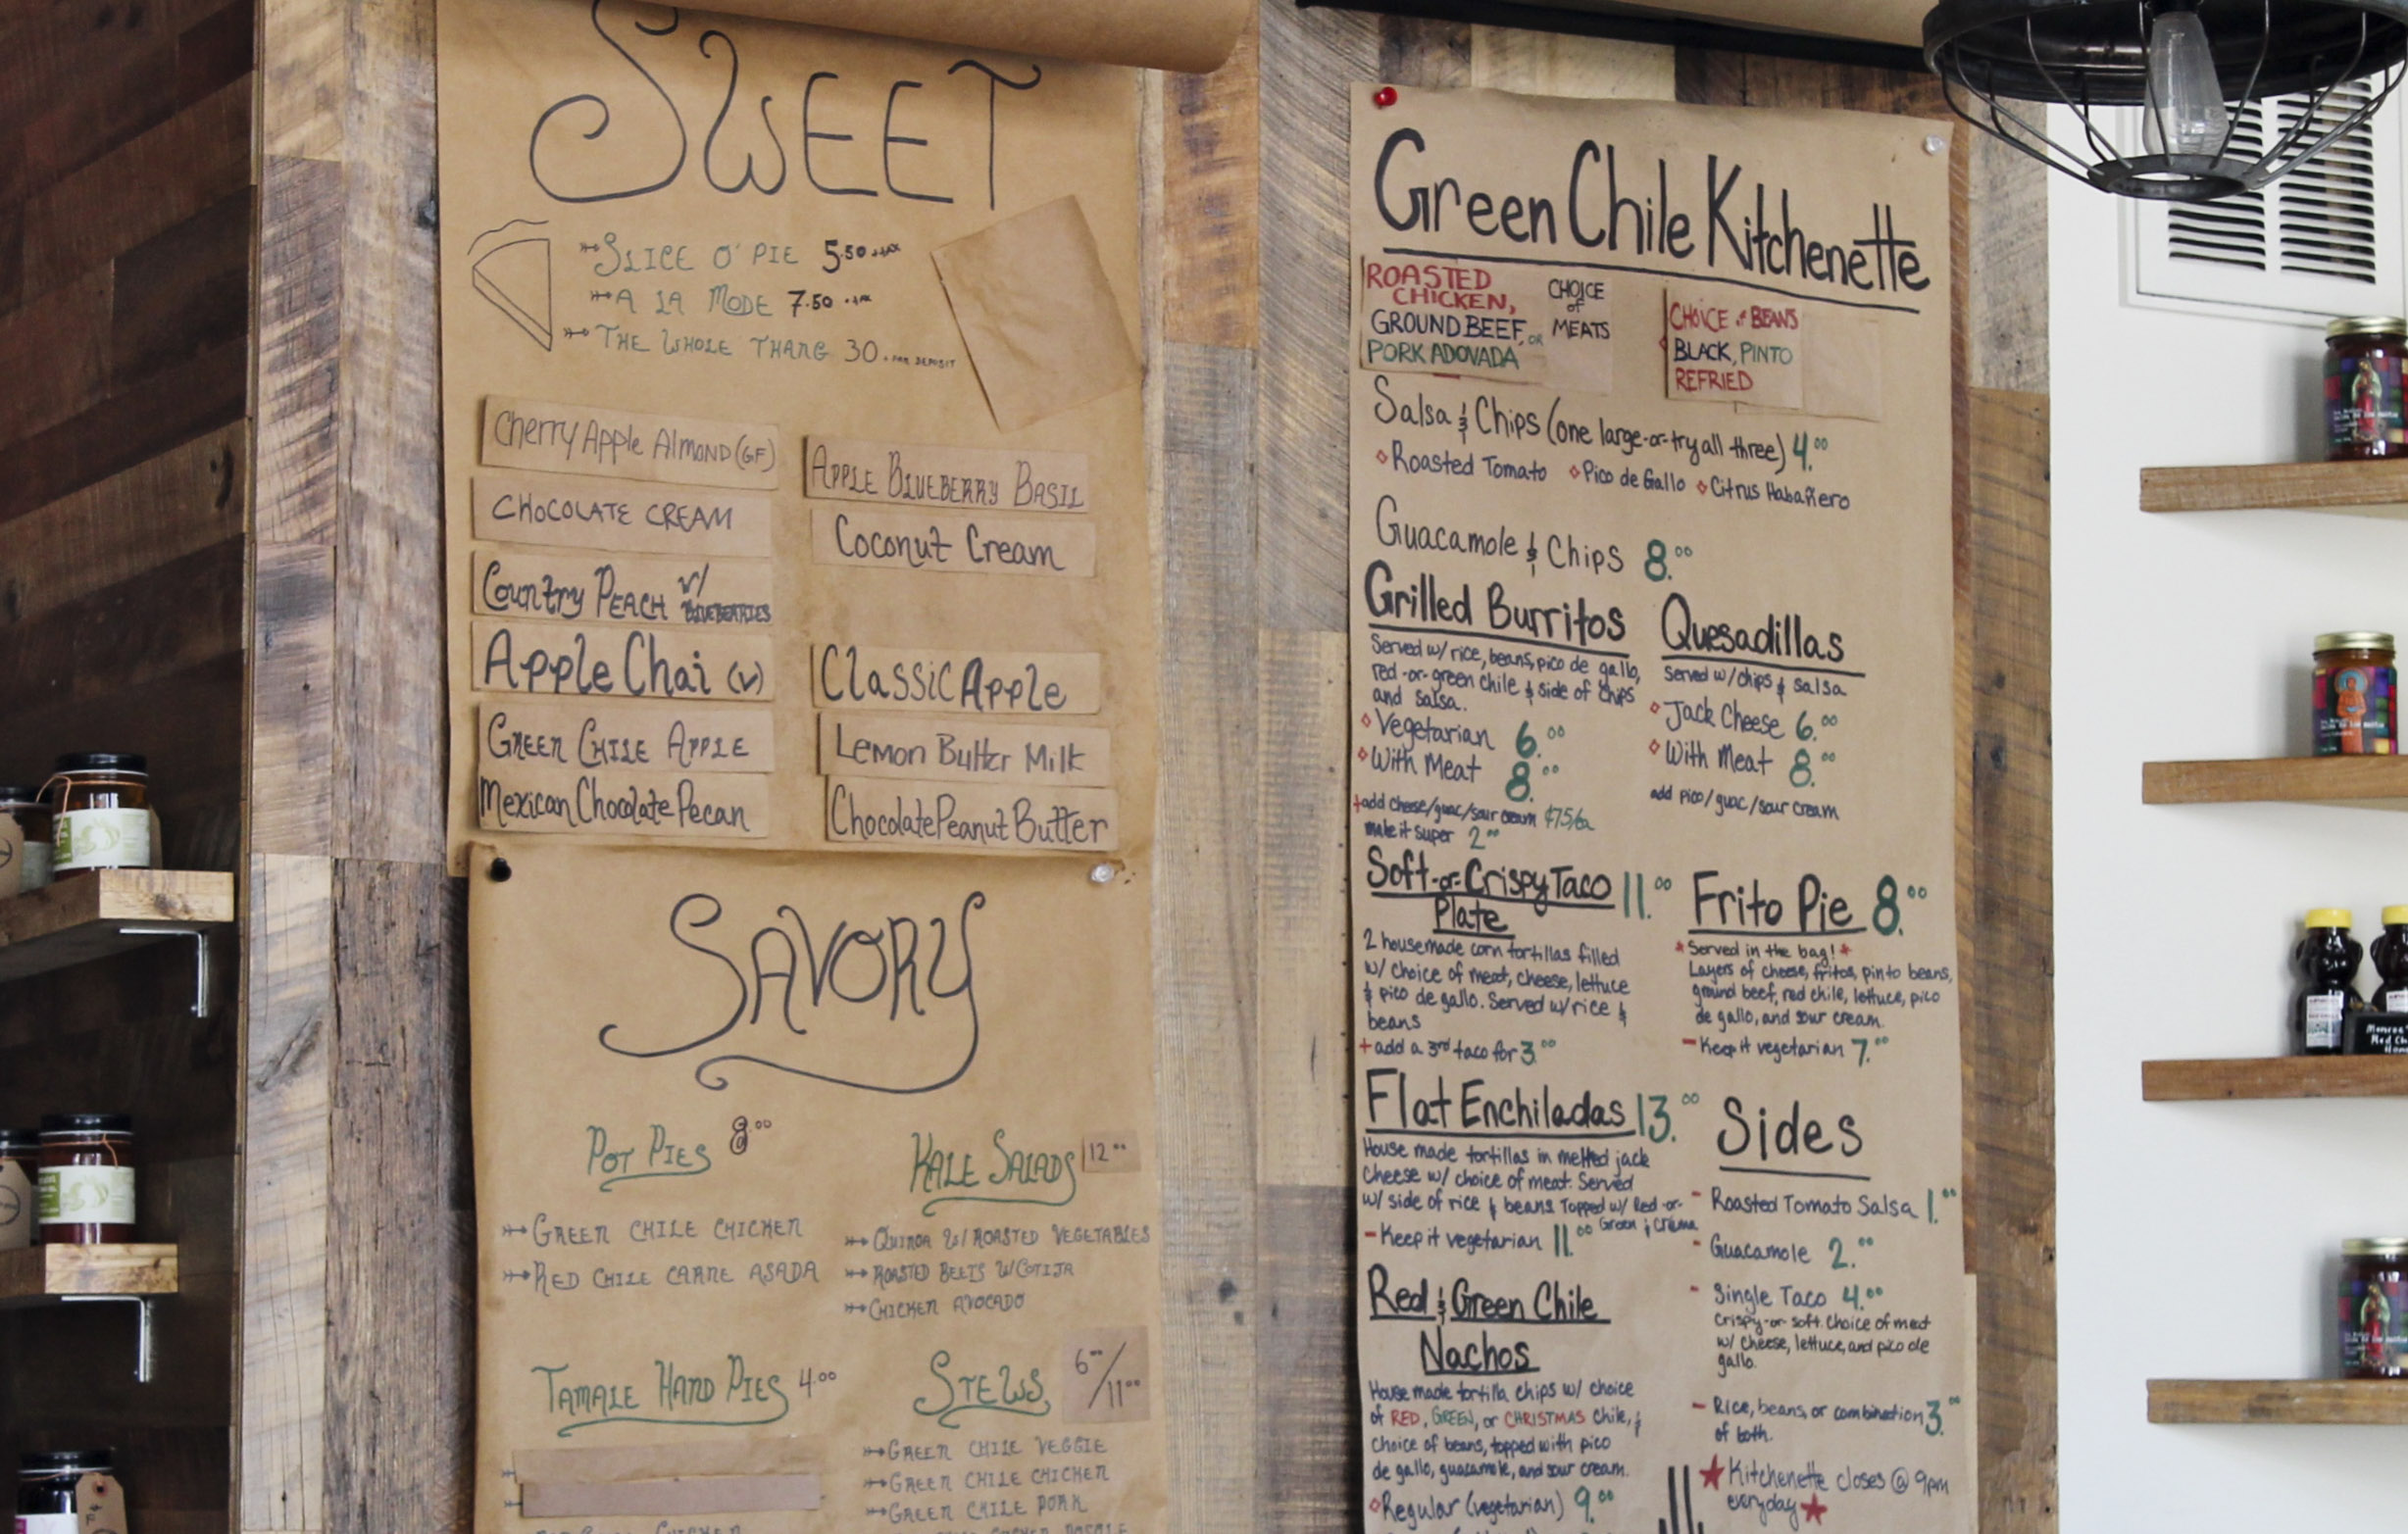 SWEET
SLICE O' PIE 5.50 +tax
A LA MODE 7.50 +tax
THE WHOLE THANG 30. DEPOSIT
Cherry Apple Almond (GF)
CHOCOLATE CREAM
Country Peach w/ BLUEBERRIES
Apple Chai (v)
GREEN CHILE APPLE
Mexican Chocolate Pecan
APPLE BLUEBERRY BASIL
Coconut Cream
Classic Apple
Lemon Butter Milk
Chocolate Peanut Butter
SAVORY
POT PIES 8.00
GREEN CHILE CHICKEN
RED CHILE CARNE ASADA
KALE SALADS 12.00
QUINOA W/ ROASTED VEGETABLES
ROASTED BEETS W/COTIJA
CHICKEN AVOCADO
TAMALE HAND PIES 4.00
STEWS 6.00/11.00
GREEN CHILE VEGGIE
GREEN CHILE CHICKEN
GREEN CHILE PORK
Green Chile Kitchenette
ROASTED CHICKEN,
GROUND BEEF, OR
PORK ADOVADA
CHOICE
of
MEATS
CHOICE of BEANS
BLACK, PINTO
REFRIED
Salsa & Chips (one large-or-try all three) 4.00
Roasted Tomato Pico de Gallo Citrus Habañero
Guacamole & Chips 8.00
Grilled Burritos
Served w/ rice, beans, pico de gallo,
red-or-green chile & side of chips
and salsa.
Vegetarian 6.00
With Meat 8.00
+add cheese/guac/sour cream $.75/ea
make it super 2.00
Quesadillas
Served w/chips & salsa
Jack Cheese 6.00
With Meat 8.00
add pico/guac/sour cream
Soft-or-Crispy Taco 11.00
Plate
2 housemade corn tortillas filled
w/ choice of meat, cheese, lettuce
& pico de gallo. Served w/ rice &
beans
+ add a 3rd taco for 3.00
Frito Pie 8.00
*Served in the bag!*
Layers of cheese, fritos, pinto beans,
ground beef, red chile, lettuce, pico
de gallo, and sour cream.
- Keep it vegetarian 7.00
Flat Enchiladas 13.00
House made tortillas in melted jack
cheese w/ choice of meat. Served
w/ side of rice & beans Topped w/ Red-or-
Green & Crema
- Keep it vegetarian 11.00
Red & Green Chile
Nachos
House made tortilla chips w/ choice
of RED, GREEN, or CHRISTMAS chile, &
choice of beans, topped with pico
de gallo, guacamole, and sour cream.
Regular (vegetarian) 9.00
Sides
- Roasted Tomato Salsa 1.00
- Guacamole 2.00
- Single Taco 4.00
crispy-or-soft. Choice of meat
w/ cheese, lettuce, and pico de
gallo.
- Rice, beans, or combination 3.00
of both.
Kitchenette closes @ 9pm
everyday